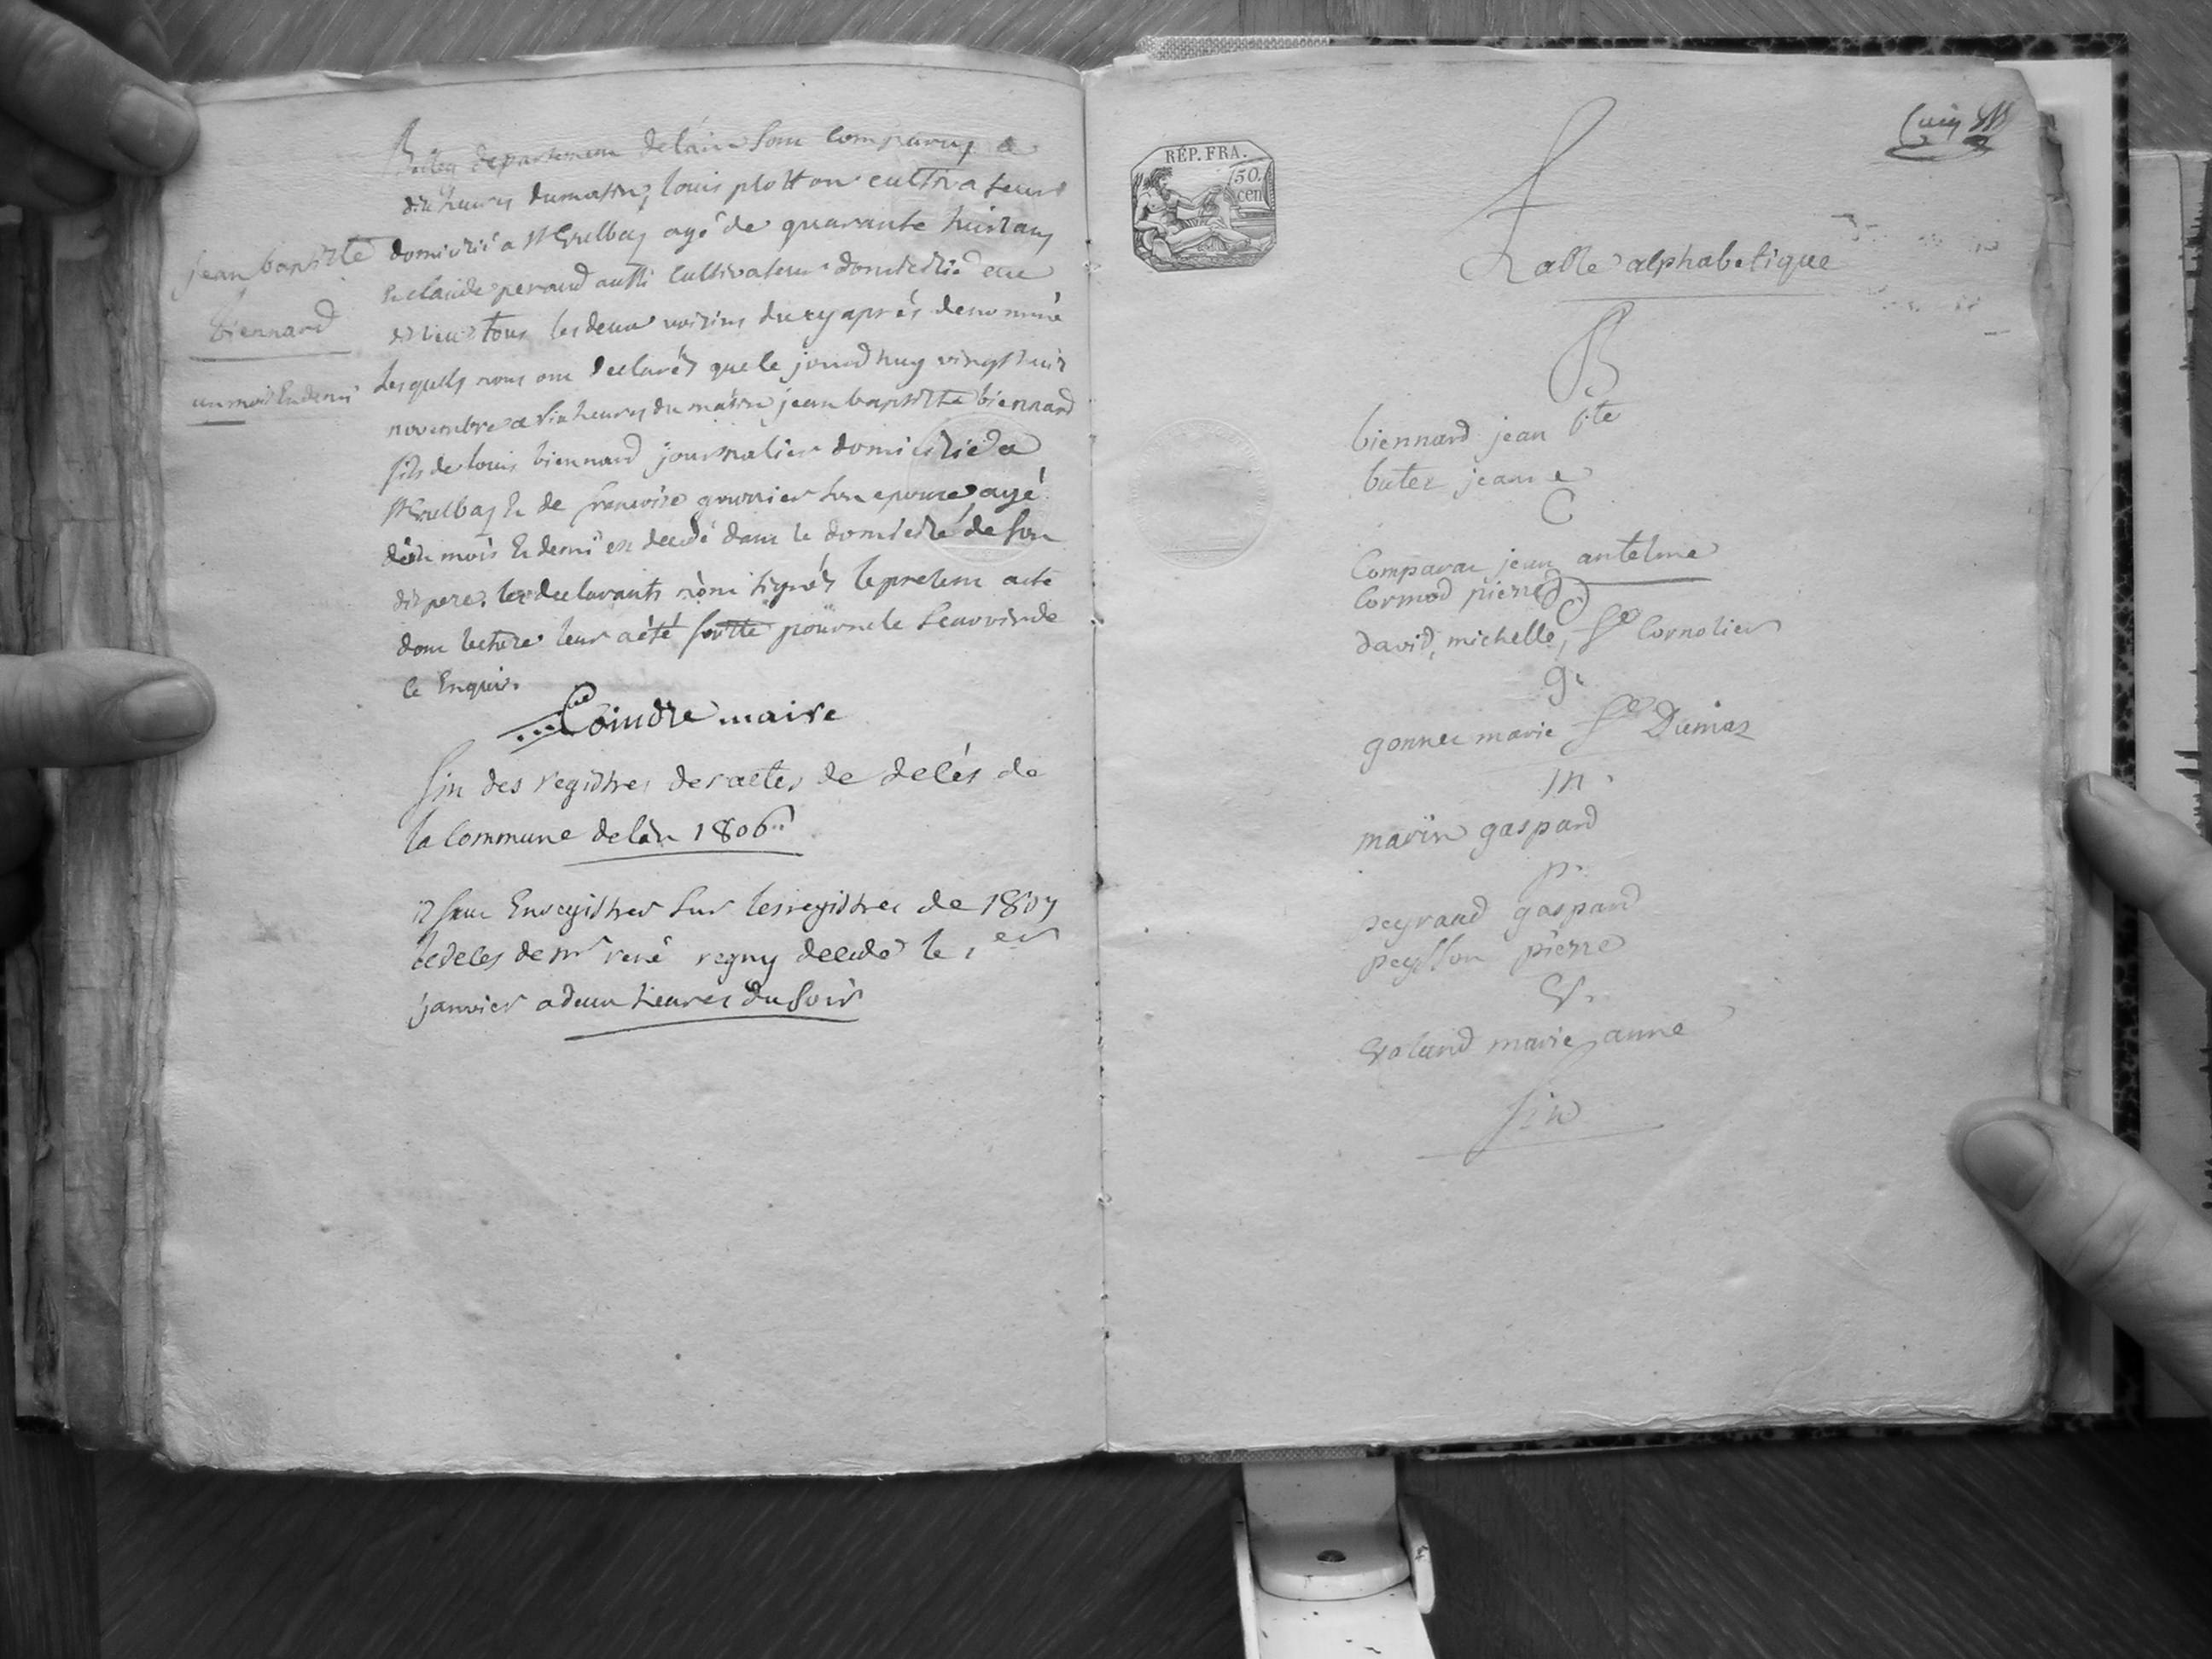 Belley departement de lain sont comparus a
dix heures du matin, louis plotton cultivateur
domicilié a St Grulbaz agé de quarante huit ans
et claude peraud aussi cultivateur domicilié au
dt lieu tous les deux voisins du cy après denommé
Lesquels nous ont declarés que le jourdhuy vingt huit
novembre a six heures du matin jean baptiste biennard
fils de louis biennard journalier domicilié a
St Grulbaz et de francoise son epouse agé
d'un mois et demi est decedé dans le domicile de son
dit pere. les declarants n'ont signés le present acte
dont lecture leur a été faitte pour ne le scavoir de
ce Enquis.
jean baptiste
biennard
un mois et demi
Coindre maire
fin des registres des actes de decés de
la Commune de l'an 1806
il faut Enregistrer sur les registres de 1807
le deces de mr rené regny decedé le 1er
janvier a deux heures du soir
RÉP. FRA.
50.
cen
Table alphabetique
B
biennard jean bte
butez jeanne
C
Comparat jean antelme
Cormod pierre
D
david, michelle, fe Cornolier
g.
gonnet marie fe Dumas
m.
marin gaspard
p.
peyraud gaspard
peysson pierre
V.
Voland marie anne
fin